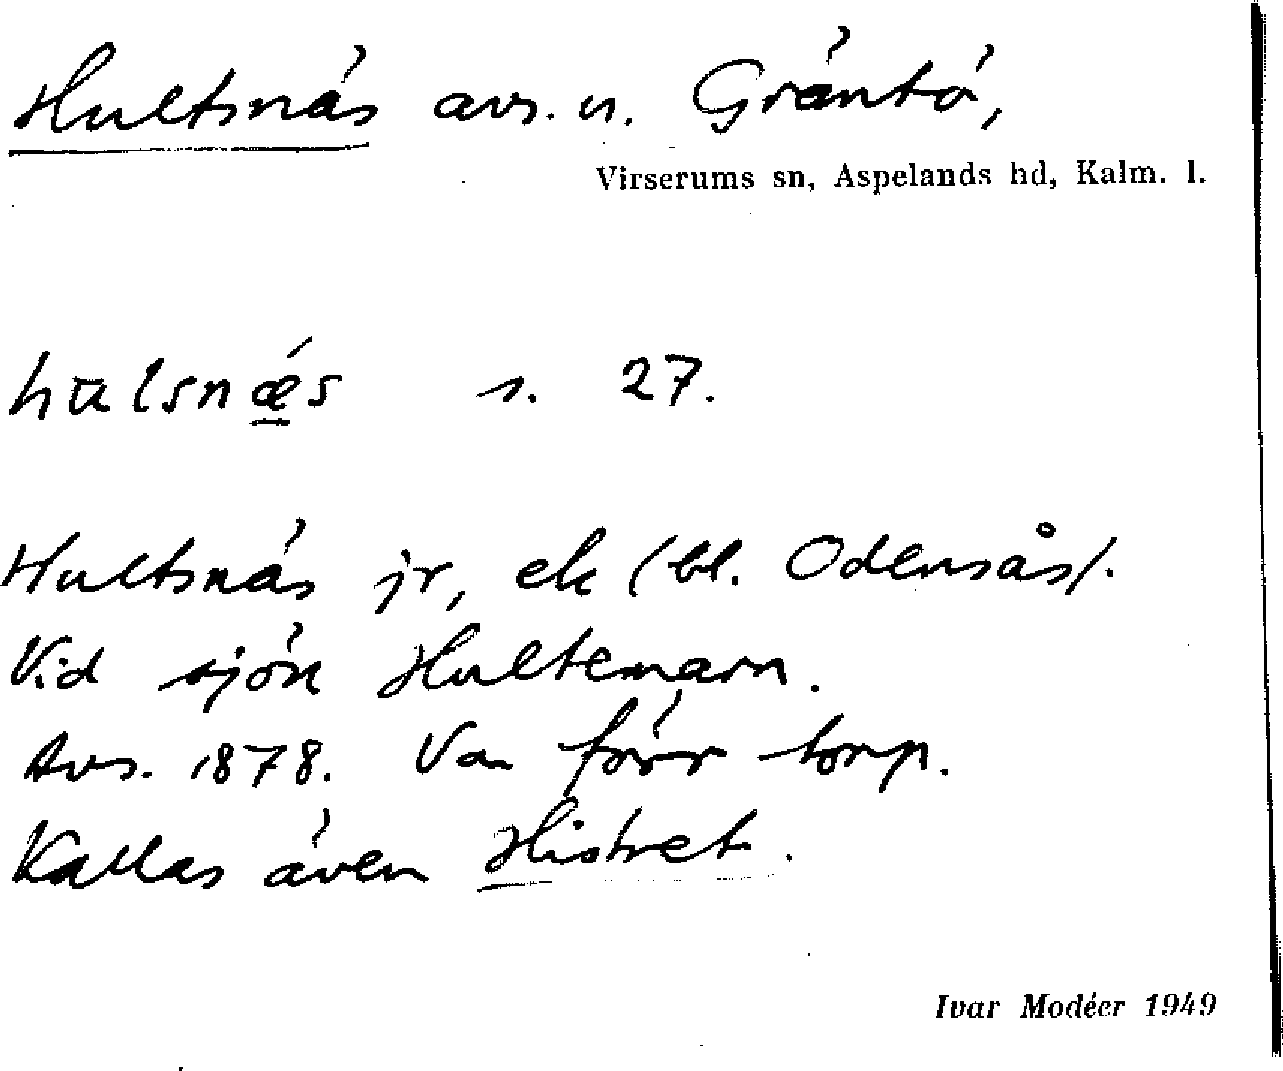 Hultsnäs avs. u. Gräntö,
Virserums sn, Aspelands hd, Kalm. l.
hu̵lsnǽs s. 27.
Hultsnäs jr, ek (bl. Odensås).
Vid sjön Hultemarn.
Avs. 1878. Var förr torp.
Kallas även Histret.
Ivar Modéer 1949